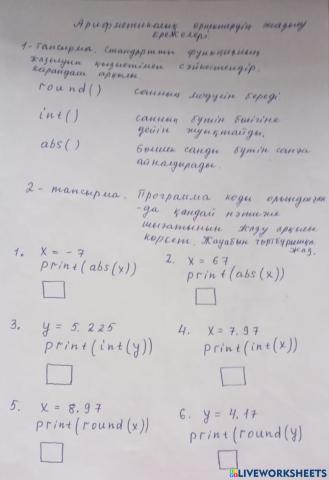 Арифметикалық өрнектердің жазылу
ережелері
1-тапсырма. Стандартты функцияның
жазылуын қызметімен сәйкестендір.
Қарапайым арқылы
round() санның модулін береді
int() санның бүтін бөлігіне
дейін жуықтайды.
abs() бөлшек санды бүтін санға
айналдырады.
2-тапсырма. Программа коды орындалған
-да қандай нәтиже
шығатынын жазу арқылы
көрсет. Жауабын төртбұрышқа
жаз.
1. x = -7
print(abs(x))
2. x = 67
print(abs(x))
3. y = 5.225
print(int(y))
4. x = 7.97
print(int(x))
5. x = 8.97
print(round(x))
6. y = 4.17
print(round(y)
LIVEWORKSHEETS